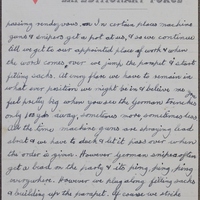 EXPEDITIONARY FORCE
passing rendezvous. On a certain place machine
guns & snipers get a pot at us, & as we continue
till we get to our appointed place of work & when
the work comes, over we jump the parapet & start
filling sacks. At very flare we have to remain in
what ever position we might be in & believe me you
feel pretty big when you see the German trenches
only 100 yds away, sometimes more, sometimes less
All the time machine guns are spraying lead
about & we have to duck & let it pass over when
the order is given. However German snipers often
get a bead on the party & its ping, ping, ping
every here. However we plug along filling sacks
& building up the parapet. Of course we strike